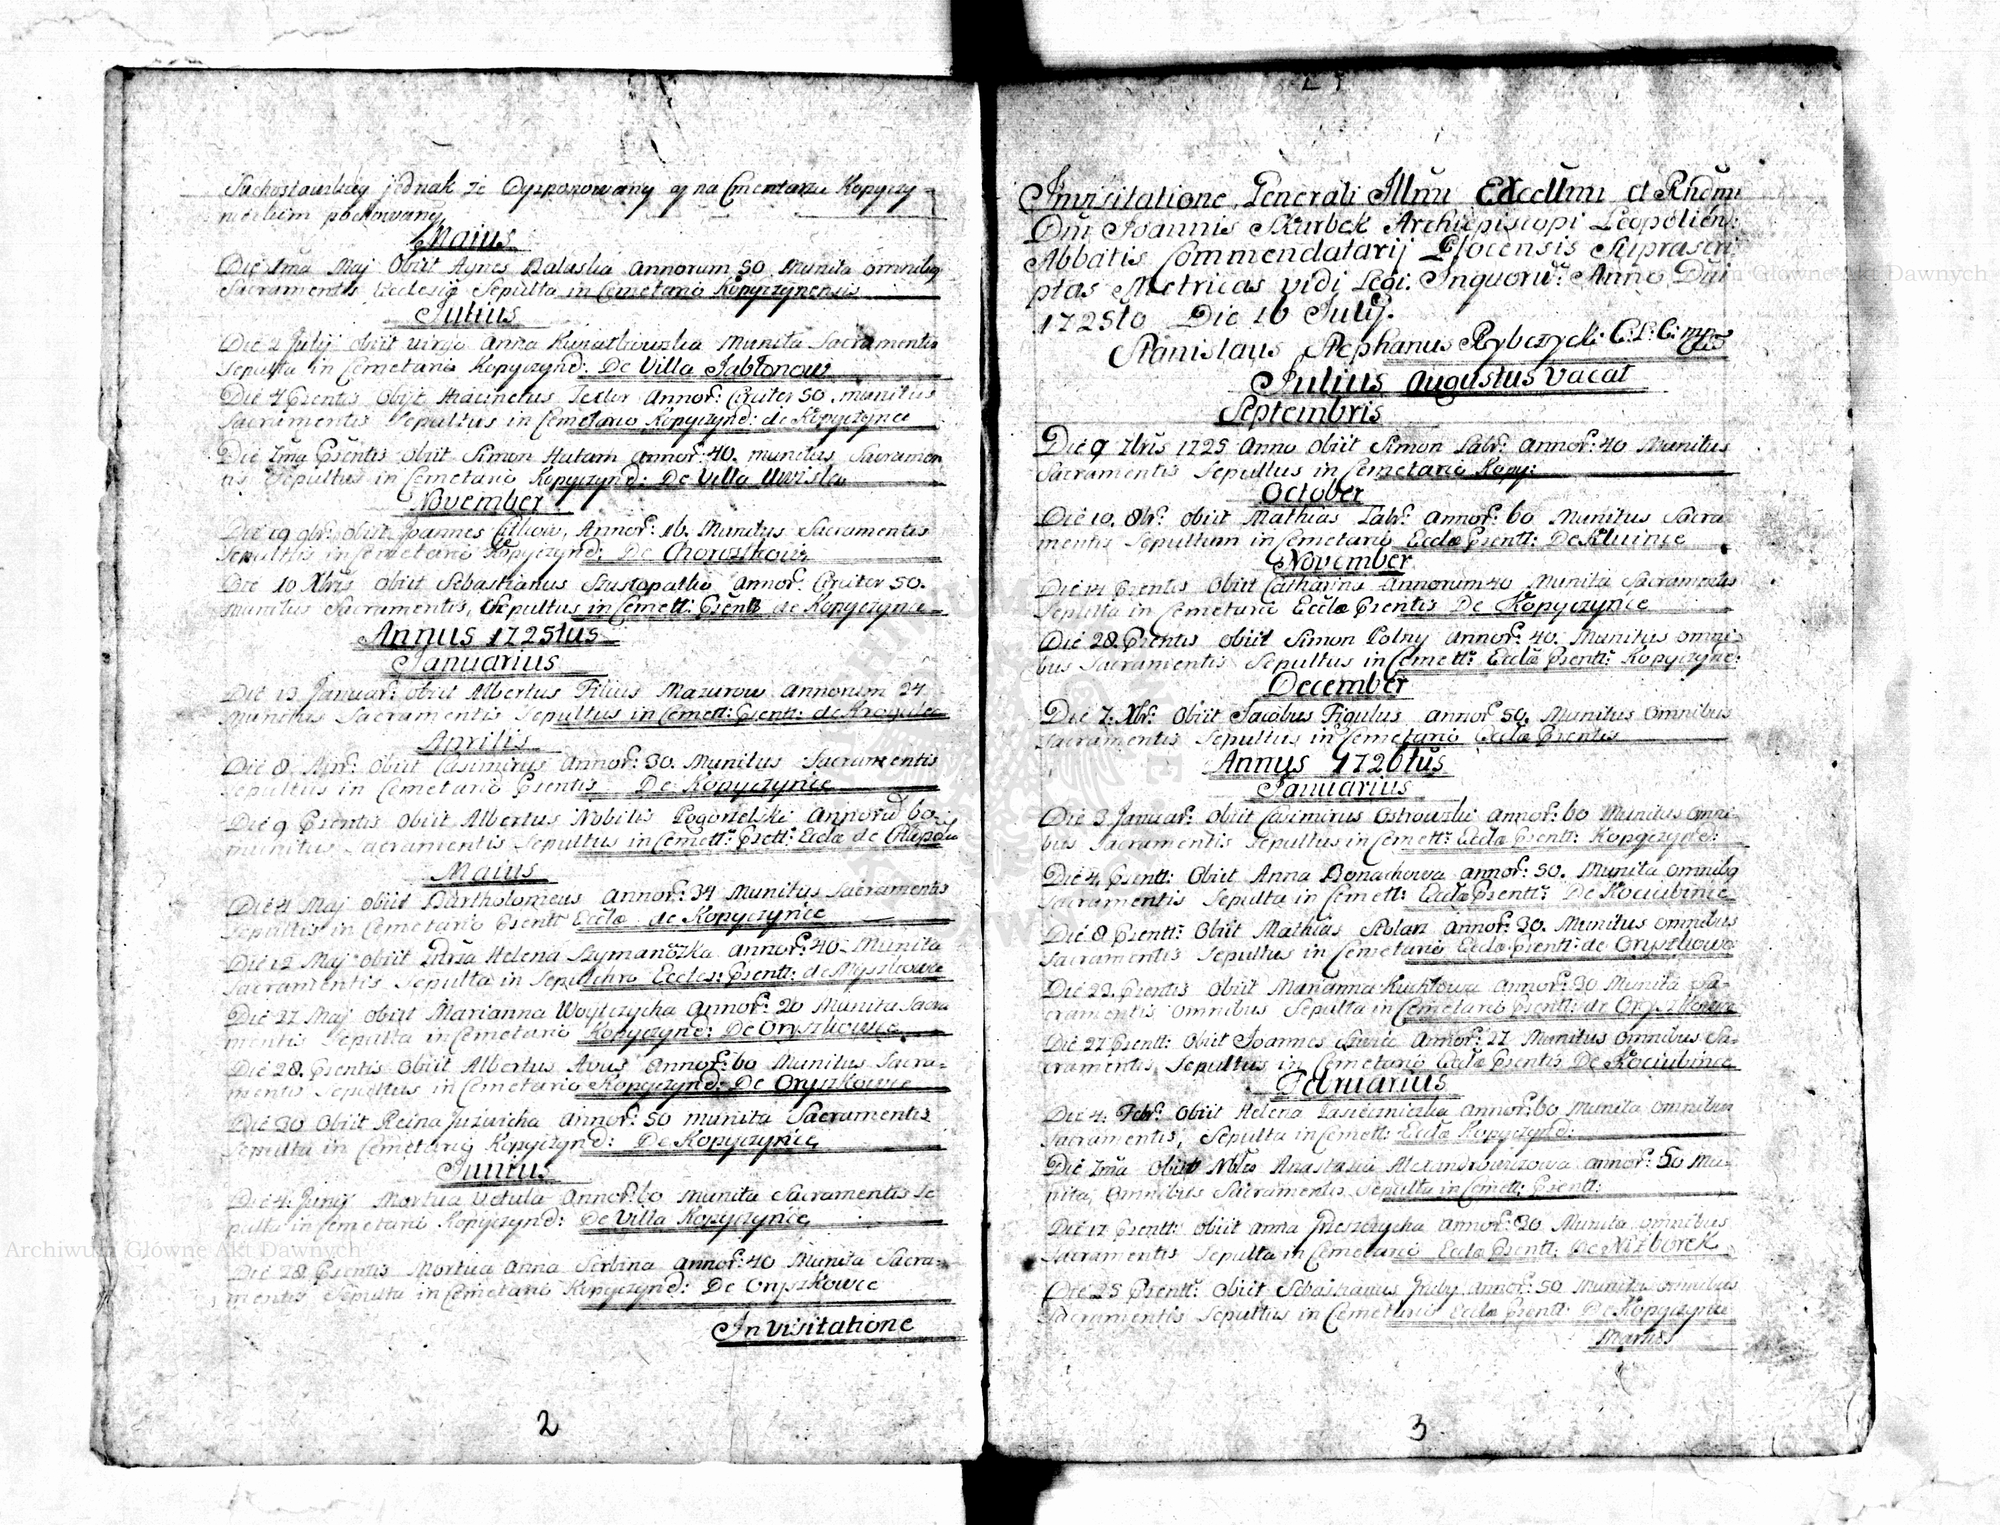 Suchostawskiey jednak ze Dysponowany y na Cmentarzu Kopyczy-
nieckim pochowany
Maius
Die 1ma Maj Obiit Agnes Balaska annorum 50 Munita omnibq
Sacramentis Ecclesiæ Sepulta in Cemetario Kopyczynensis
Julius
Die 2 July obiit virgo Anna Kwiatkowska Munita Sacramentis
Sepulta in Cemetario Kopyczynd: De Villa Jabłonow
Die 4 Psentis Obijt Hiacinctus Textor Annor: Citer 50. munitus
Sacramentis Sepultus in Cemetario Kopyczynd: de Kopyczynce
Die 7ma Psentis obiit Simon Hutam annor: 40. munitus Sacramen
tis Sepultus in Cemetario Kopyczynd: De Villa Uwisla
November
Die 19 9br: obiit Joannes Annor: 16. Munitus Sacramentis
Sepultus in Cemetario Kopyczynd: De Chorostkow
Die 10 Xbris obiit Sebastianus annor: Citer 50.
Munitus Sacramentis, Sepultus in Cemett: Psentt de Kopyczynce
Annus 1725tus
Januarius
Die 13 Januar: obiit Albertus Filius Mazurow annorum 24
Munitus Sacramentis Sepultus in Cemett: Psentt: de
Aprilis
Die 8. Apr: Obiit Casimirus Annor: 30. Munitus Sacramentis
Sepultus in Cemetario Psentis De Kopyczynce
Die 9 Psentis obiit Albertus Nobilis Pogorzelski Annorū 60
munitus Sacramentis Sepultus in Cemett: Psett: Ecclæ de
Maius
Die 4 Maj obiit Bartholomeus annor: 34 Munitus Sacramentis
Sepultus in Cemetario Psentt Ecclæ de Kopyczynce
Die 12 Maj obiit Helena Szymanozka annor: 40. Munita
Sacramentis Sepulta in Sepulchro Eccles: Psentt: de Myszkowce
Die 27 Maj obiit Marianna Woytczycha Annor: 20 Munita Sacra
mentis Sepulta in Cemetario Kopyczynd: De Oryszkowce
Die 28. Psentis Obiit Albertus Avus Annor: 60 Munitus Sacra-
mentis Sepultus in Cemetario Kopyczynd: De Oryszkowce
Die 30 Obiit Reina annor: 50 munita Sacramentis
Sepulta in Cemetario Kopyczynd: De Kopyczynce
Junius
Die 4. Junij Mortua Vetula Annor: 60 Munita Sacramentis Se
pulta in Cemetario Kopyczynd: De Villa Kopyczynce
Die 28 Psentis Mortua Anna Serbina annor: 40 Munita Sacra-
mentis Sepulta in Cemetario Kopyczynd: De Oryszkowce
In Visitatione
2
In Visitatione Generali Illmi Excellmi et Rndmi
Dni Joannis Skarbek Archiepiscopi Leopolien:
Abbatis Commendatarij Plocensis Suprascri
ptas Metricas vidi Legi. In quorū: Anno Dni
1725to Die 16 July.
Stanislaus Stephanus Rybczyck: C: L: C: mpp
Julius Augustus Vacat
Septembris
Die 9 7bris 1725 Anno Obiit Simon Fabr: annor: 40 Munitus
Sacramentis Sepultus in Cemetario Kopy:
October
Die 10. 8br: obiit Mathias Fabr: annor: 60 Munitus Sacra
mentis Sepultum in Cemetario Ecclæ Psentt: De
November
Die 14 Psentis Obiit Catharina Annorum 40 Munita Sacramentis
Sepulta in Cemetario Ecclæ Psentis De Kopyczynce
Die 28. Psentis obiit Simon Polny annor: 40. Munitus omni-
bus Sacramentis Sepultus in Cemett: Ecclæ Psentt: Kopyczynd:
December
Die 7. Xbr: Obiit Jacobus Figulus annor: 50. Munitus omnibus
Sacramentis Sepultus in Cemetario Ecclæ Psentis
Annus 1726tus
Januarius
Die 3 Januar: obiit Casimirus Ostrowski annor: 60 Munitus omni-
bus Sacramentis Sepultus in Cemett: Ecclæ Psentt: Kopyczynd:
Die 4. Psentt: Obiit Anna Bonachowa annor: 50. Munita omnibq
Sacramentis Sepulta in Cemett: Ecclæ Psentt: De Kociubince
Die 8 Psentt: Obiit Mathias Stolarz annor: 30. Munitus omnibus
Sacramentis Sepultus in Cemetario Ecclæ Psentt: de Oryszkowce
Die 23. Psentis obiit Marianna Kuchtowa annor: 30 Munita Sa-
cramentis omnibus Sepulta in Cemetario Psentt: de Oryszkowce
Die 27 Psentt: Obiit Joannes annor: 27 Munitus omnibus Sa-
cramentis, Sepultus in Cemetario Ecclæ Psentis De Kociubince
Februarius
Die 4. Febr: Obiit Helena annor: 60 Munita omnibus
Sacramentis, Sepulta in Cemett: Ecclæ Kopyczynd:
Die 7ma Obiit Nblis Anastasia Alexandrowiczowa annor: 50 Mu-
nita, omnibus Sacramentis Sepulta in Cemett: Psentt:
Die 12 Psentt: Obiit anna annor: 30 Munita omnibus
Sacramentis Sepulta in Cemetario Ecclæ Psentt: De Nizborek
Die 25 Psentt: Obiit Sebastianus annor: 50 Munitus omnibus
Sacramentis Sepultus in Cemetario Ecclæ Psentt: De Kopyczynce
Martius
3
Archiwum Główne Akt Dawnych